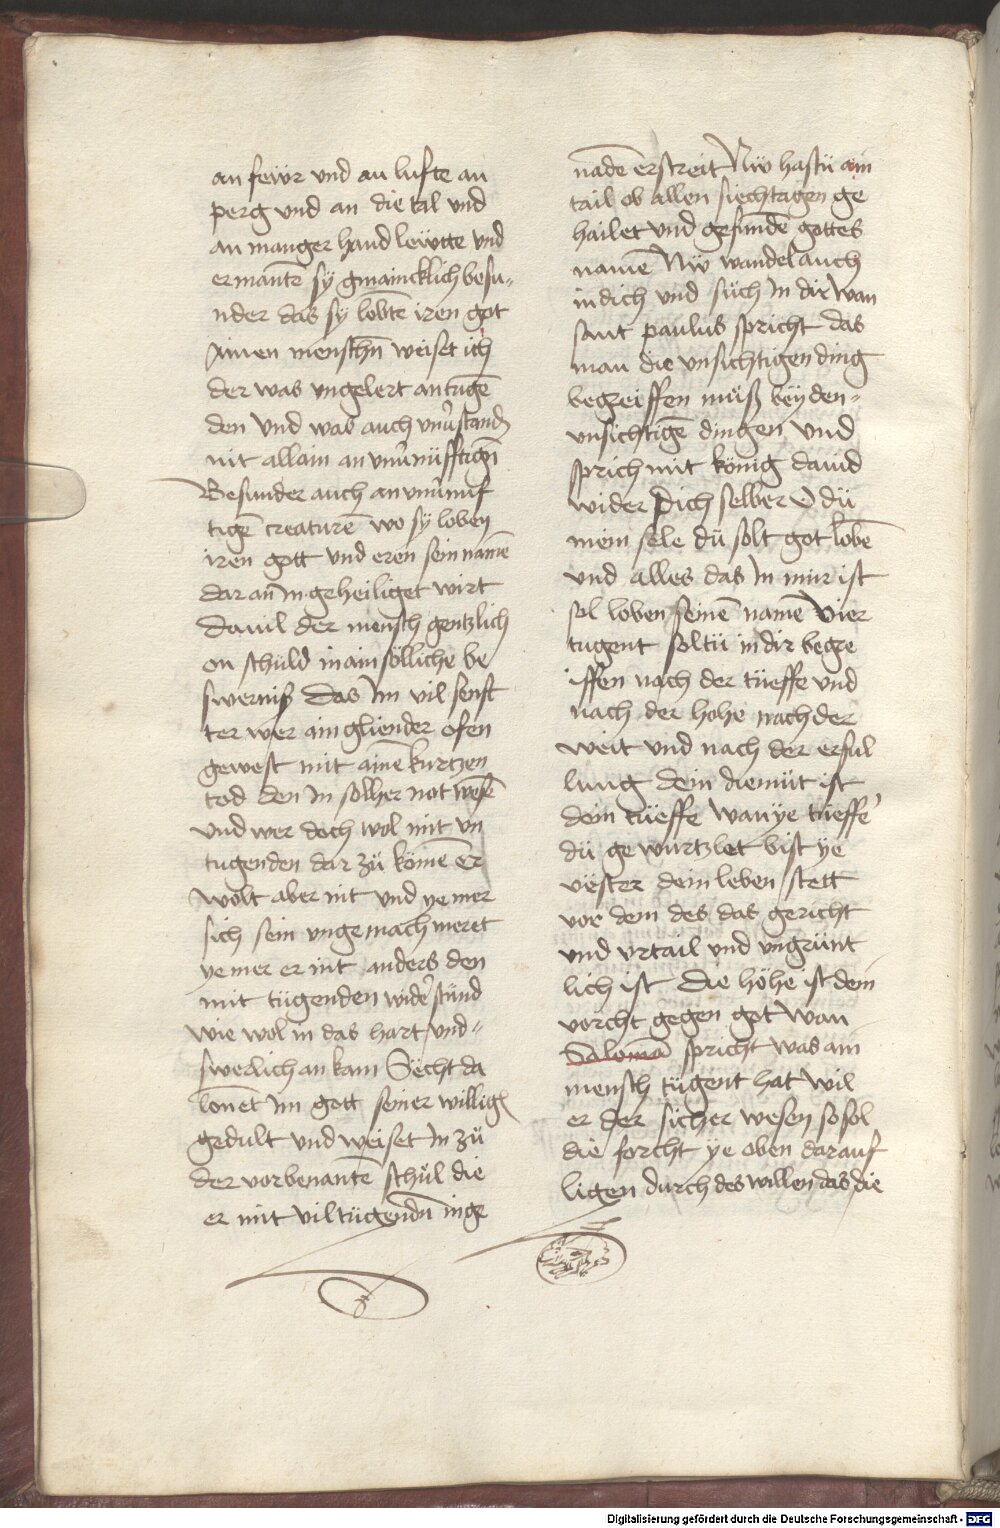 an fewr vnd an lufte an
perg vnd an die tal vnd
an manger hand lewtte vnd
ermante sy gmaincklich besu-
nder das sy lobte iren got
Ainen menschn weiset ich
der was vngelert an tuge
den vnd was auch vnustand
nit allain an vnunufftign
Besunder auch an vnunuf
tige creature wo sy loben
iren gott vnd eren sein name
dar an In geheiliget wirt
Da viel der mensch gentzlich
on schuld in ain sölliche be
swerniß Das Im vil senft
ter wer ain gliender ofen
gewest mit aine kurtzen
tod den In solher not wese
vnd wer doch wol mit vn
tugenden dar zü kömen Er
wolt aber nit vnd ye mer
sich sein vngemach meret
ye mer er nit anders den
mit tügenden wider stünd
wie wol in das hart vnd-
swerlich an kam Secht da
lonet Im gott seiner willig
gedult vnd weiset In zü
der vorbenante schul die
er mit vil tügendn in ge
naden erstreit Nw hastü ain
tail ob allen siechtagen ge
hailet vnd gesunde gottes
name Nw wandel auch
in dich vnd such In dir Wan
sant paulus spricht das
man die vnsichtigen ding
begreiffen müß bey den-
vnsichtige dingen vnd
sprich mit könig dauid
wider Dich selber O dü
mein sele dü solt got lobe
vnd alles das In mir ist
sol loben seine name Vier
tugent soltü in dir begre
iffen nach der tüeffe vnd
nach der hohe nach der
weit vnd nach der erful
lung dein diemüt ist
dein tüeffe wan ye tüeffe
dü gewurtzlet bist ye
vester dein leben stett
vor dem des das gericht
vnd vrtail vnd vngrünt
lich ist Die höhe ist dein
vorcht gegen got Wan
Saloma spricht was ain
mensch tügent hat wil
er der sicher wesen so sol
die forcht ye oben darauf
ligen durch des willen das die
Digitalisierung gefördert durch die Deutsche Forschungsgemeinschaft - DFG